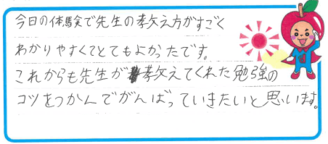 今日の体験で先生の教え方がすごく
わかりやすくてとてもよかったです。
これからも先生が教えてくれた勉強の
コツをつかんでがんばっていきたいと思います。